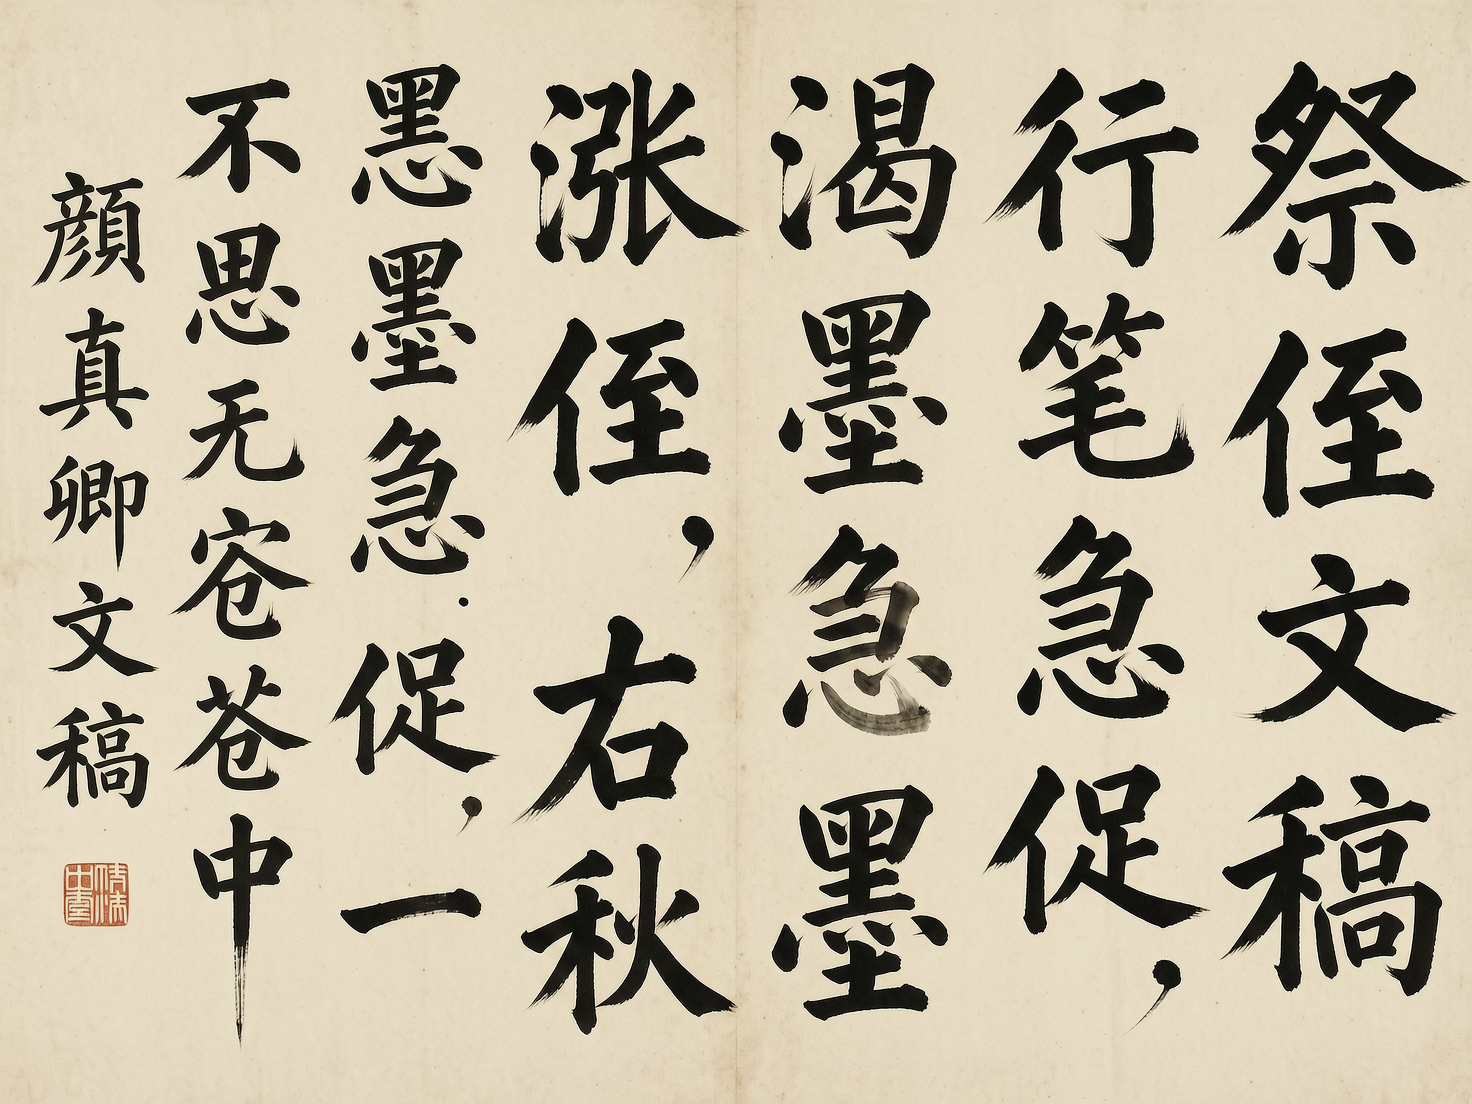 祭侄文稿
行笔急促，
渴墨急墨
涨侄，右秋
墨墨急．促，一
不思无㝐苍中
顔真卿文稿